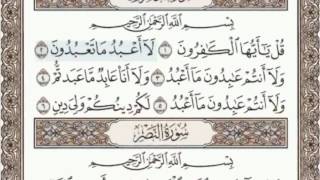 بِسْمِ اللَّهِ الرَّحْمَٰنِ الرَّحِيمِ
قُلْ يَا أَيُّهَا الْكَافِرُونَ ١ لَا أَعْبُدُ مَا تَعْبُدُونَ ٢
وَلَا أَنتُمْ عَابِدُونَ مَا أَعْبُدُ ٣ وَلَا أَنَا عَابِدٌ مَّا عَبَدتُّمْ ٤
وَلَا أَنتُمْ عَابِدُونَ مَا أَعْبُدُ ٥ لَكُمْ دِينُكُمْ وَلِيَ دِينِ ٦
سُورَةُ النَّصْرِ
بِسْمِ اللَّهِ الرَّحْمَٰنِ الرَّحِيمِ